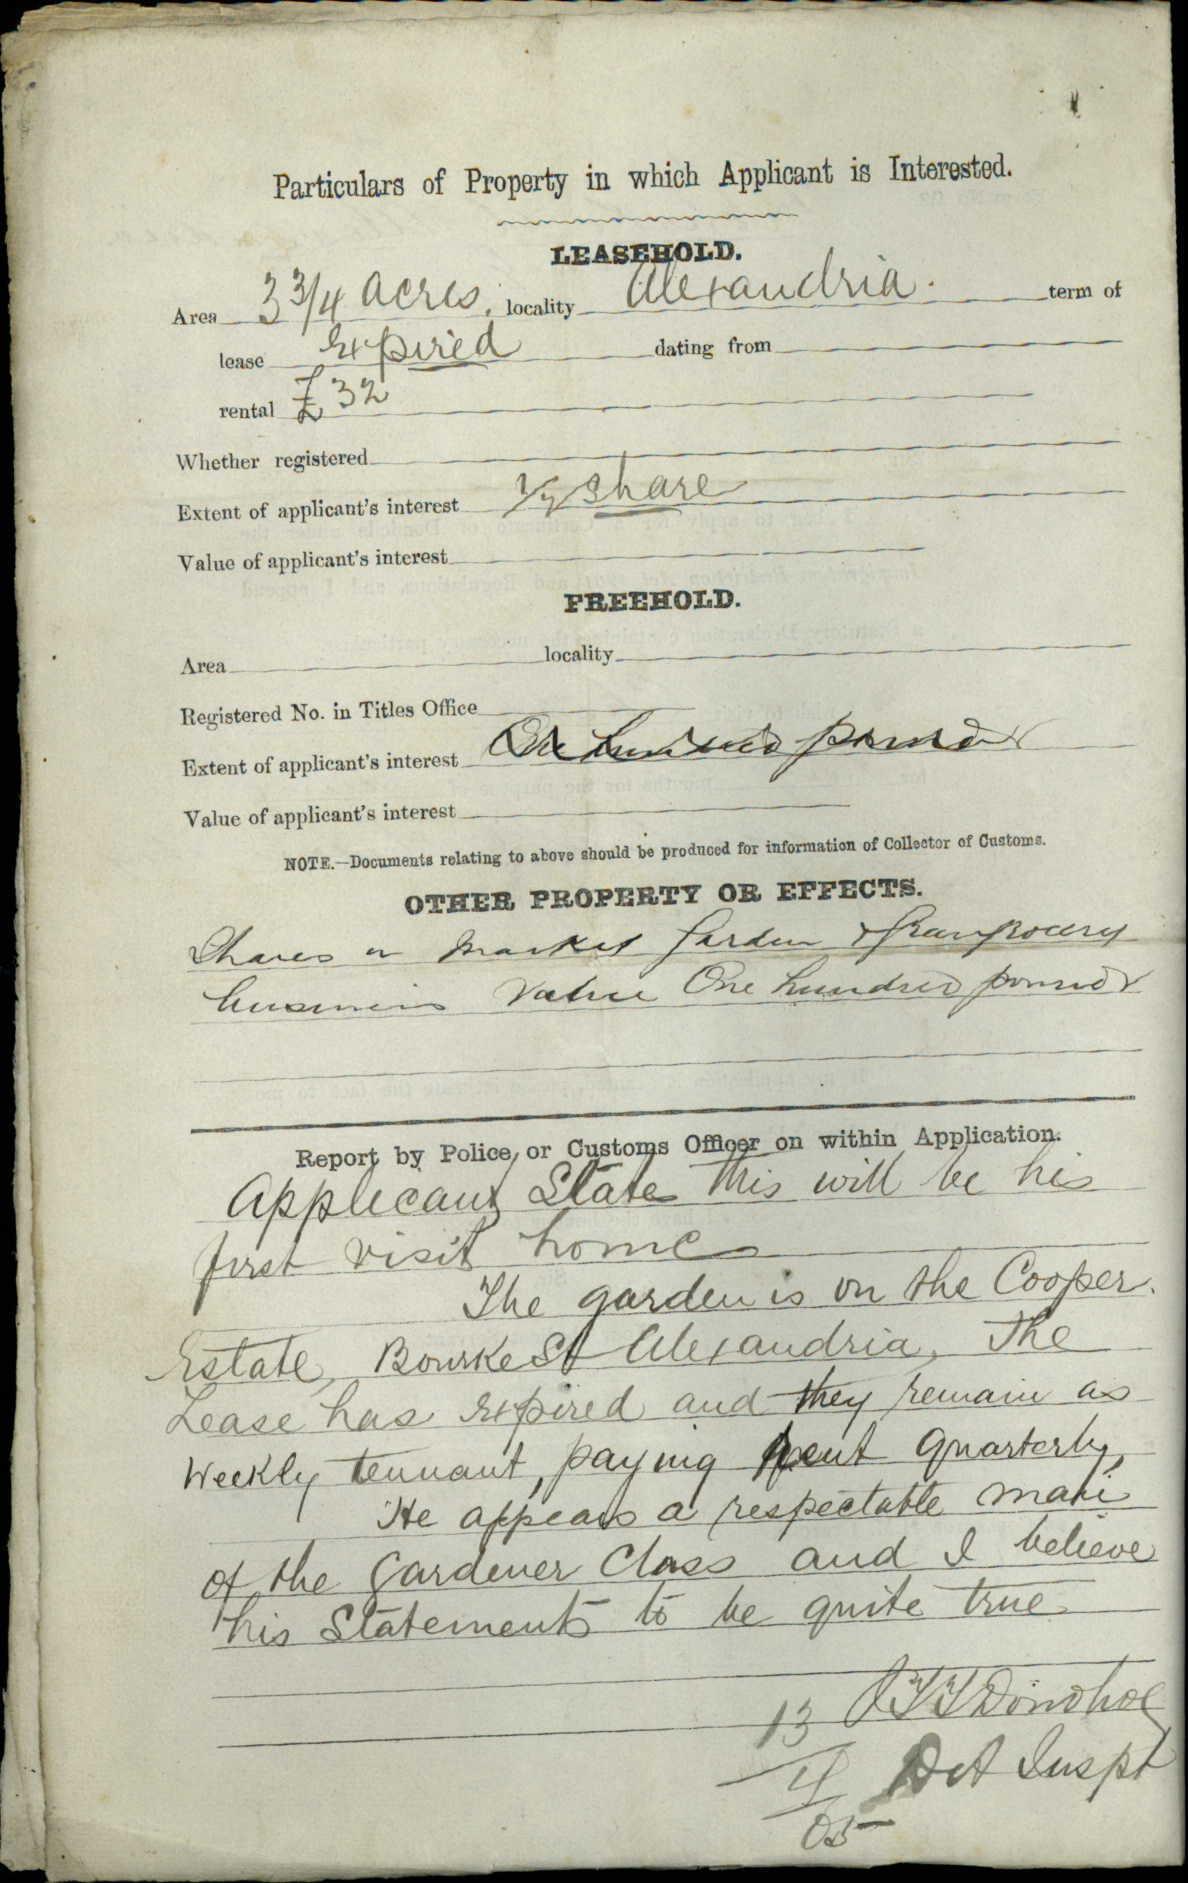 Particulars of Property in which Applicant is Interested.
LEASEHOLD.
Area 3 3/4 acres, locality Alexandria. term of
lease Expired dating from
rental £32
Whether registered
Extent of applicant's interest 1/7 share
Value of applicant's interest
FREEHOLD.
Area locality
Registered No. in Titles Office
Extent of applicant's interest One hundred pounds
Value of applicant's interest
NOTE.—Documents relating to above should be produced for information of Collector of Customs.
OTHER PROPERTY OR EFFECTS.
Shares in market garden & Greengrocery
business Value One hundred pounds
Report by Police or Customs Officer on within Application.
Applicant States this will be his
first visit home
The garden is on the Cooper
Estate, Bourke St Alexandria, The
Lease has expired and they remain as
Weekly tennant, paying rent quarterly,
He appears a respectable man
of the Gardener Class and I believe
his Statements to be quite true
Donohoe
13 Det Inspt
4
05